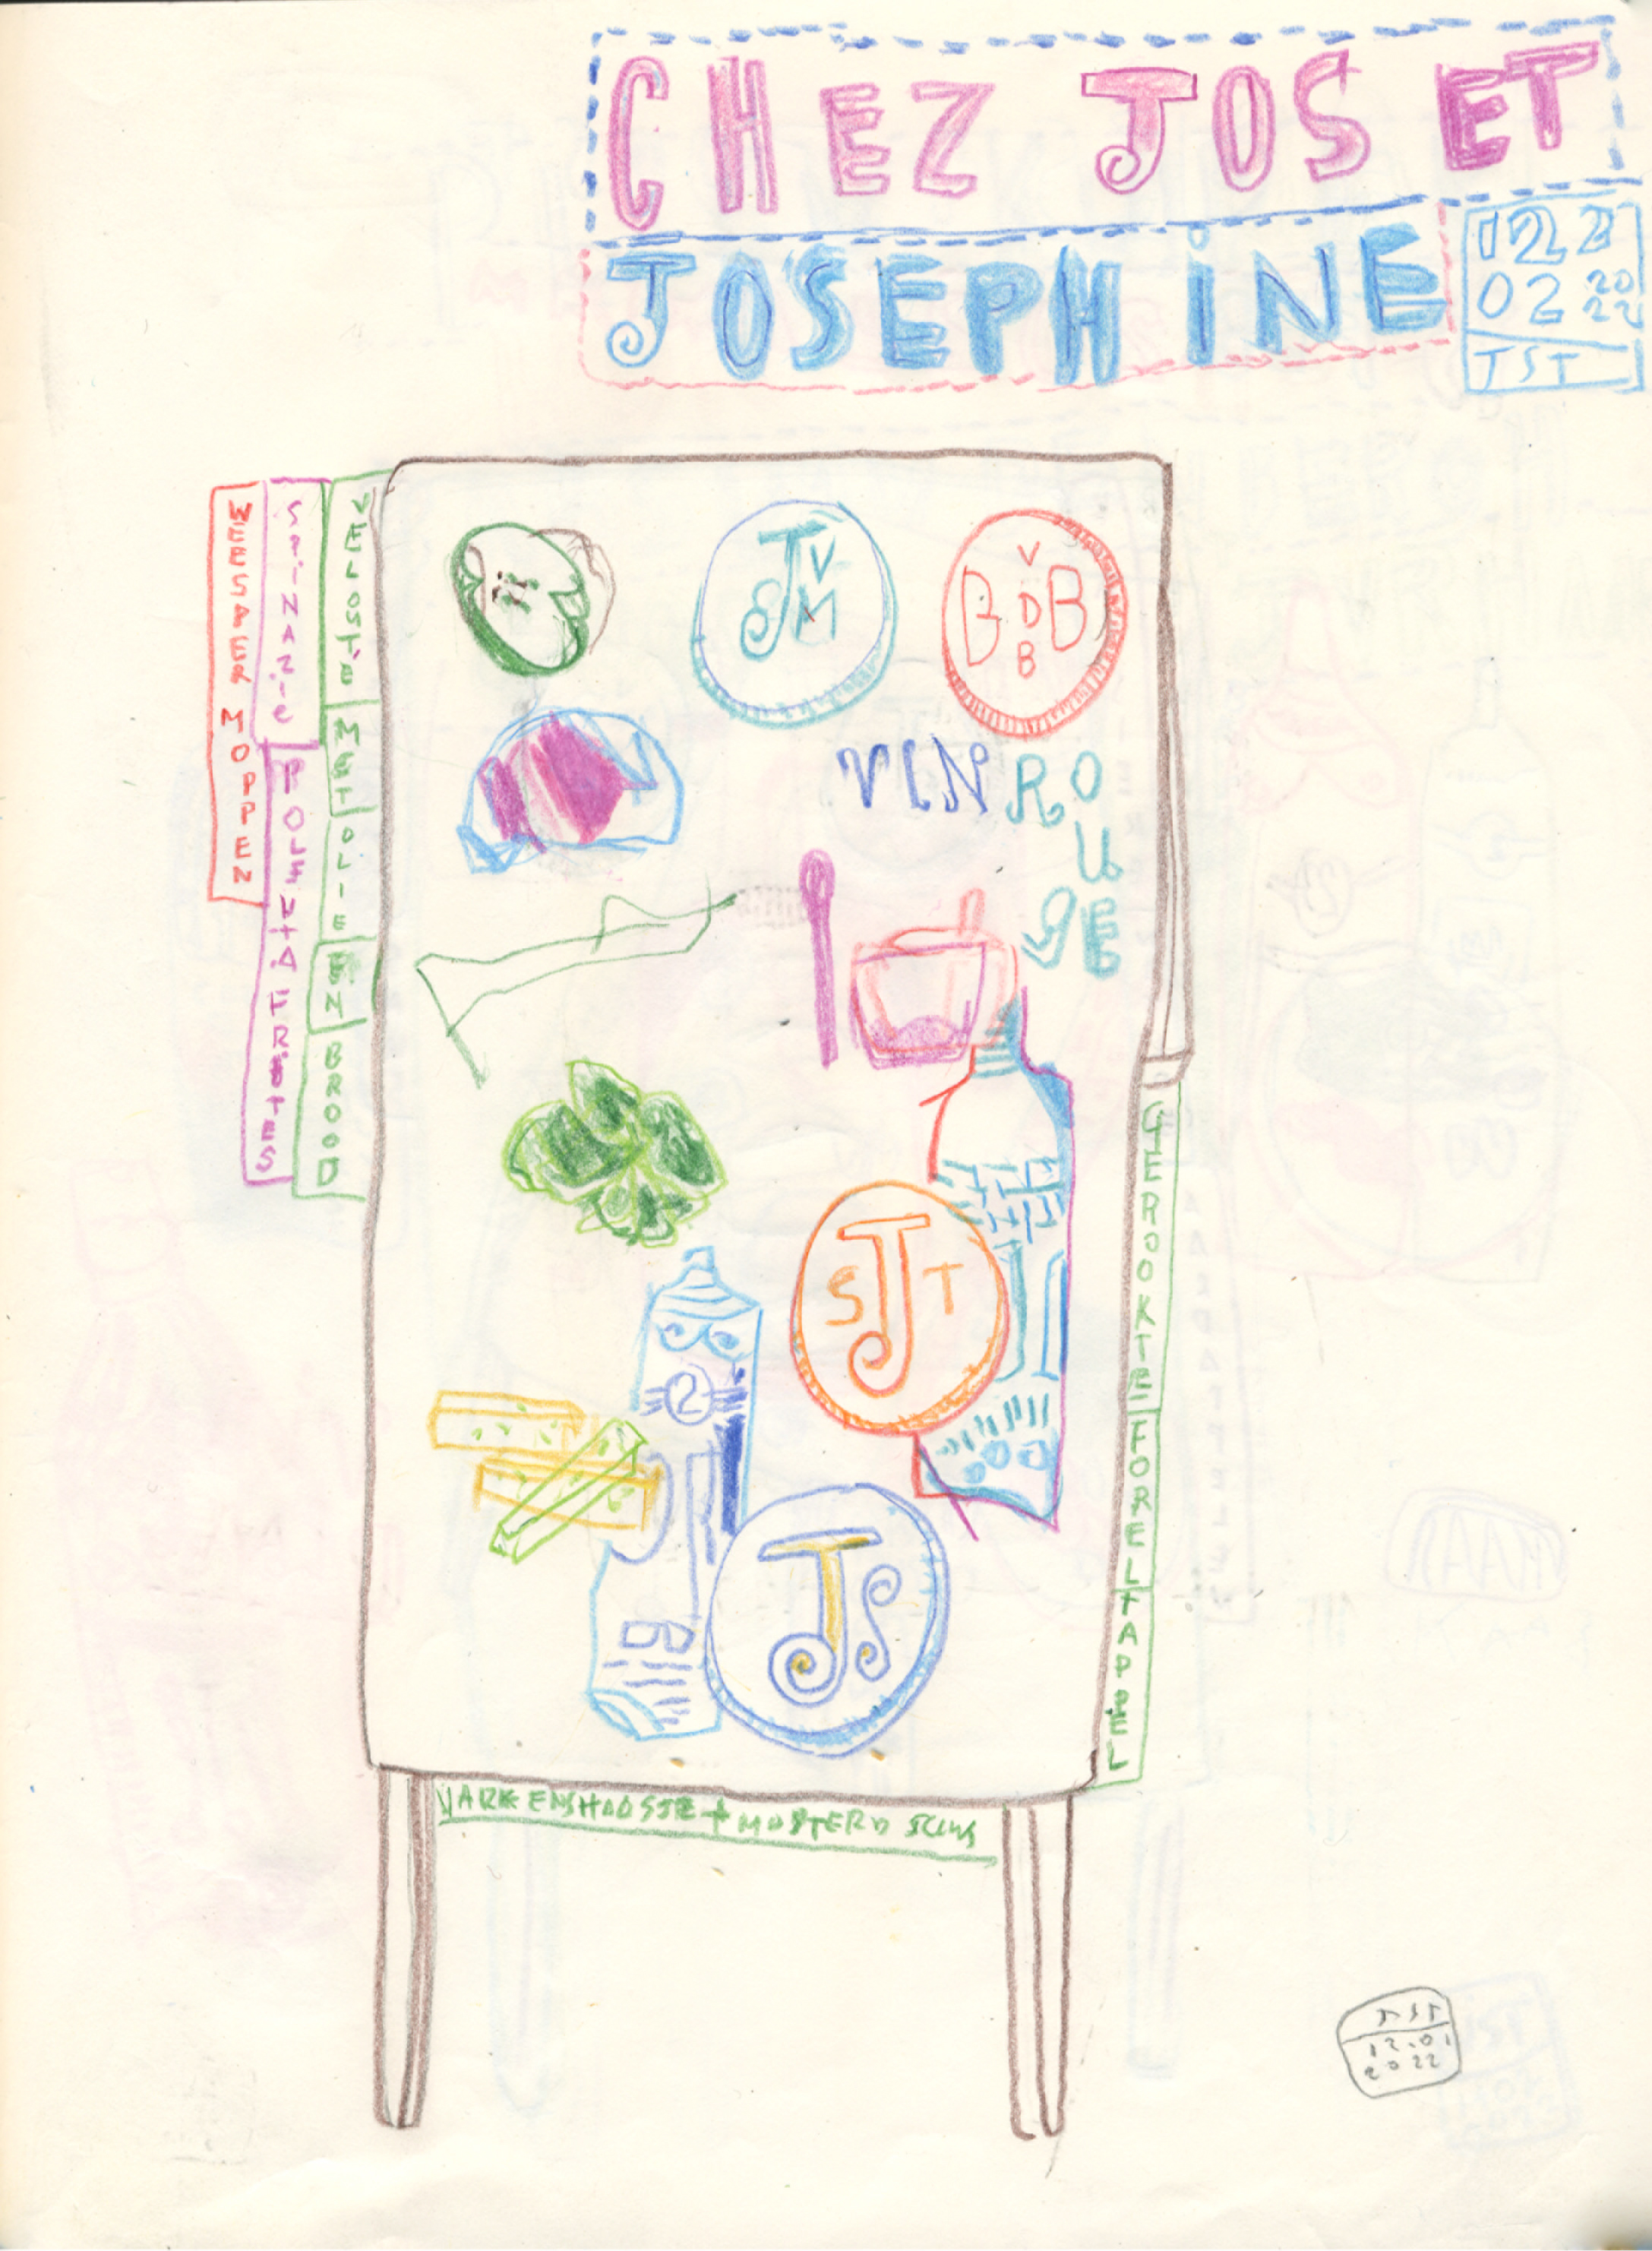 CHEZ JOS ET
JOSEPHINE
122
02 20
22
TST
WEESPER MOPPEN
SPINAZIE
POLENTA FRITES
VELOSTÉ MET OLIE EN BROOD
J V
S M
V
B D B
B
VIN ROUGE
S J T
2
J S
GEROOKTE FOREL + APPEL
VARKENSHAASJE + MOSTERD
TST
12.01
2022